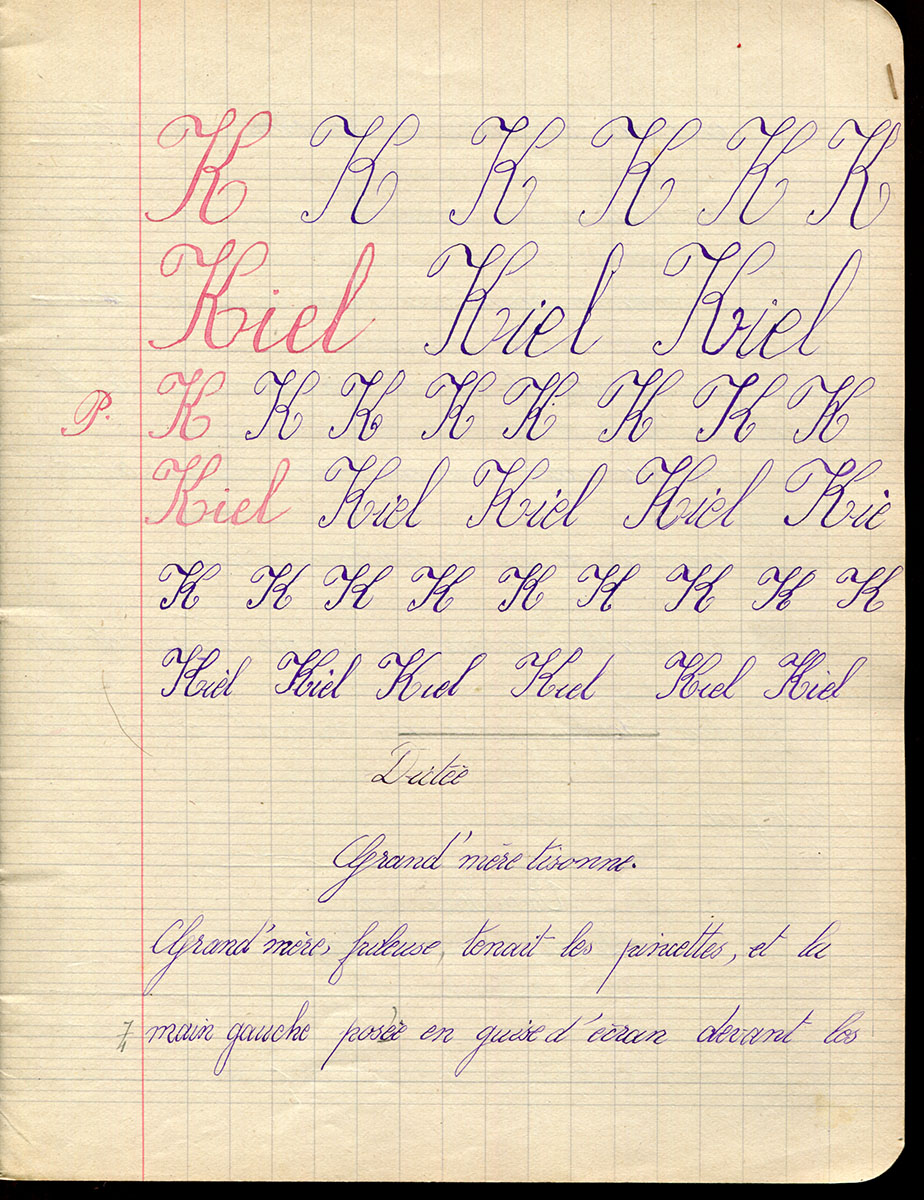 K K K K K K
Kiel Kiel Kiel
P. K K K K K K K K
Kiel Kiel Kiel Kiel Kie
K K K K K K K K K
Kiel Kiel Kiel Kiel Kiel Kiel
Dictée
Grand'mère tisonne.
Grand'mère, frileuse, tenait les pincettes, et la
main gauche posée en guise d'écran devant les